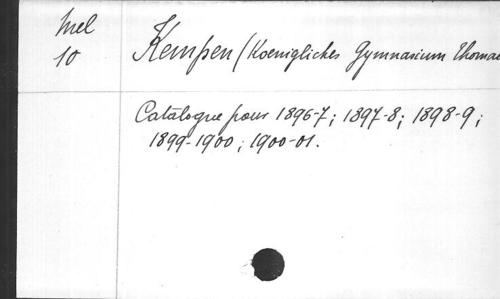 Mel
10
Kempen (Koenigliches Gymnasium Thomae
Catalogue pour 1896-7; 1897-8; 1898-9;
1899-1900; 1900-01.